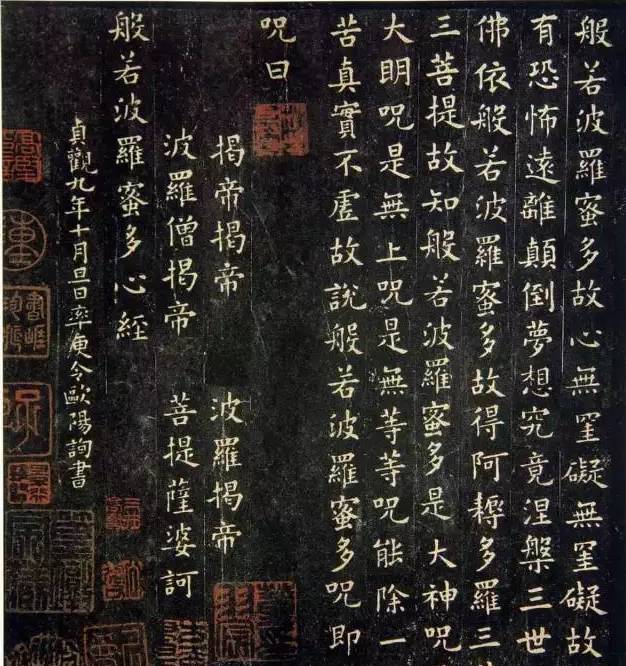 般若波羅蜜多故心無罣礙無罣礙故
有恐怖遠離顛倒夢想究竟涅槃三世
佛依般若波羅蜜多故得阿耨多羅三
三菩提故知般若波羅蜜多是大神咒
大明咒是無上咒是無等等咒能除一
苦真實不虛故說般若波羅蜜多咒即
咒曰
揭帝揭帝 波羅揭帝
波羅僧揭帝 菩提薩婆訶
般若波羅蜜多心經
貞觀九年十月旦日率更令歐陽詢書